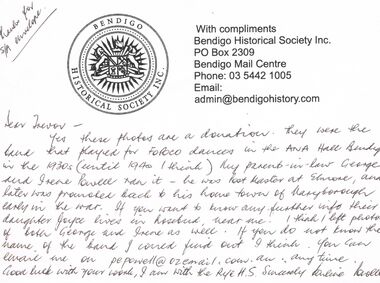 thanks for
S/A envelope.
BENDIGO
HISTORICAL SOCIETY INC.
With compliments
Bendigo Historical Society Inc.
PO Box 2309
Bendigo Mail Centre
Phone: 03 5442 1005
Email:
admin@bendigohistory.com
Dear Trevor -
Yes these photos are a donation - they were the
band that played for dances in the ANA Hall Bendigo
in the 1930s (until 1940 I think) My parent-in-law George
and Irene Powell ran it - he was Post Master at Elmore, and
later was promoted back to his home town of Maryborough
early in the war. If you want to know any further info their
daughter Joyce lives in Rosebud, near me. I think I left photos
of both George and Irene as well. If you do not know the
name of the band I could find out I think. You can
email me on pepowell@ozemail.com.au. anytime
Good luck with your work, I am with the Rye H.S. Sincerely Pauline Powell